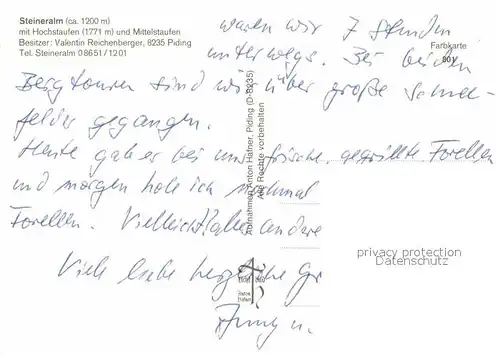 Steineralm (ca. 1200 m)
mit Hochstaufen (1771 m) und Mittelstaufen
Besitzer: Valentin Reichenberger, 8235 Piding
Tel. Steineralm 08651/1201
Farbkarte
801
waren wir 7 Stunden
unterwegs. Bei beiden
Bergtouren sind wir über große Schnee-
felder gegangen.
Heute gab er bei uns frische, gegrillte Forellen
und morgen hole ich nochmal
Forellen. Vielleicht alle andere
Viele liebe herzliche Gr
Aufnahme Anton Hafner, Piding (D-8235)
Alle Rechte vorbehalten
Anton
Hafner
privacy protection
Datenschutz